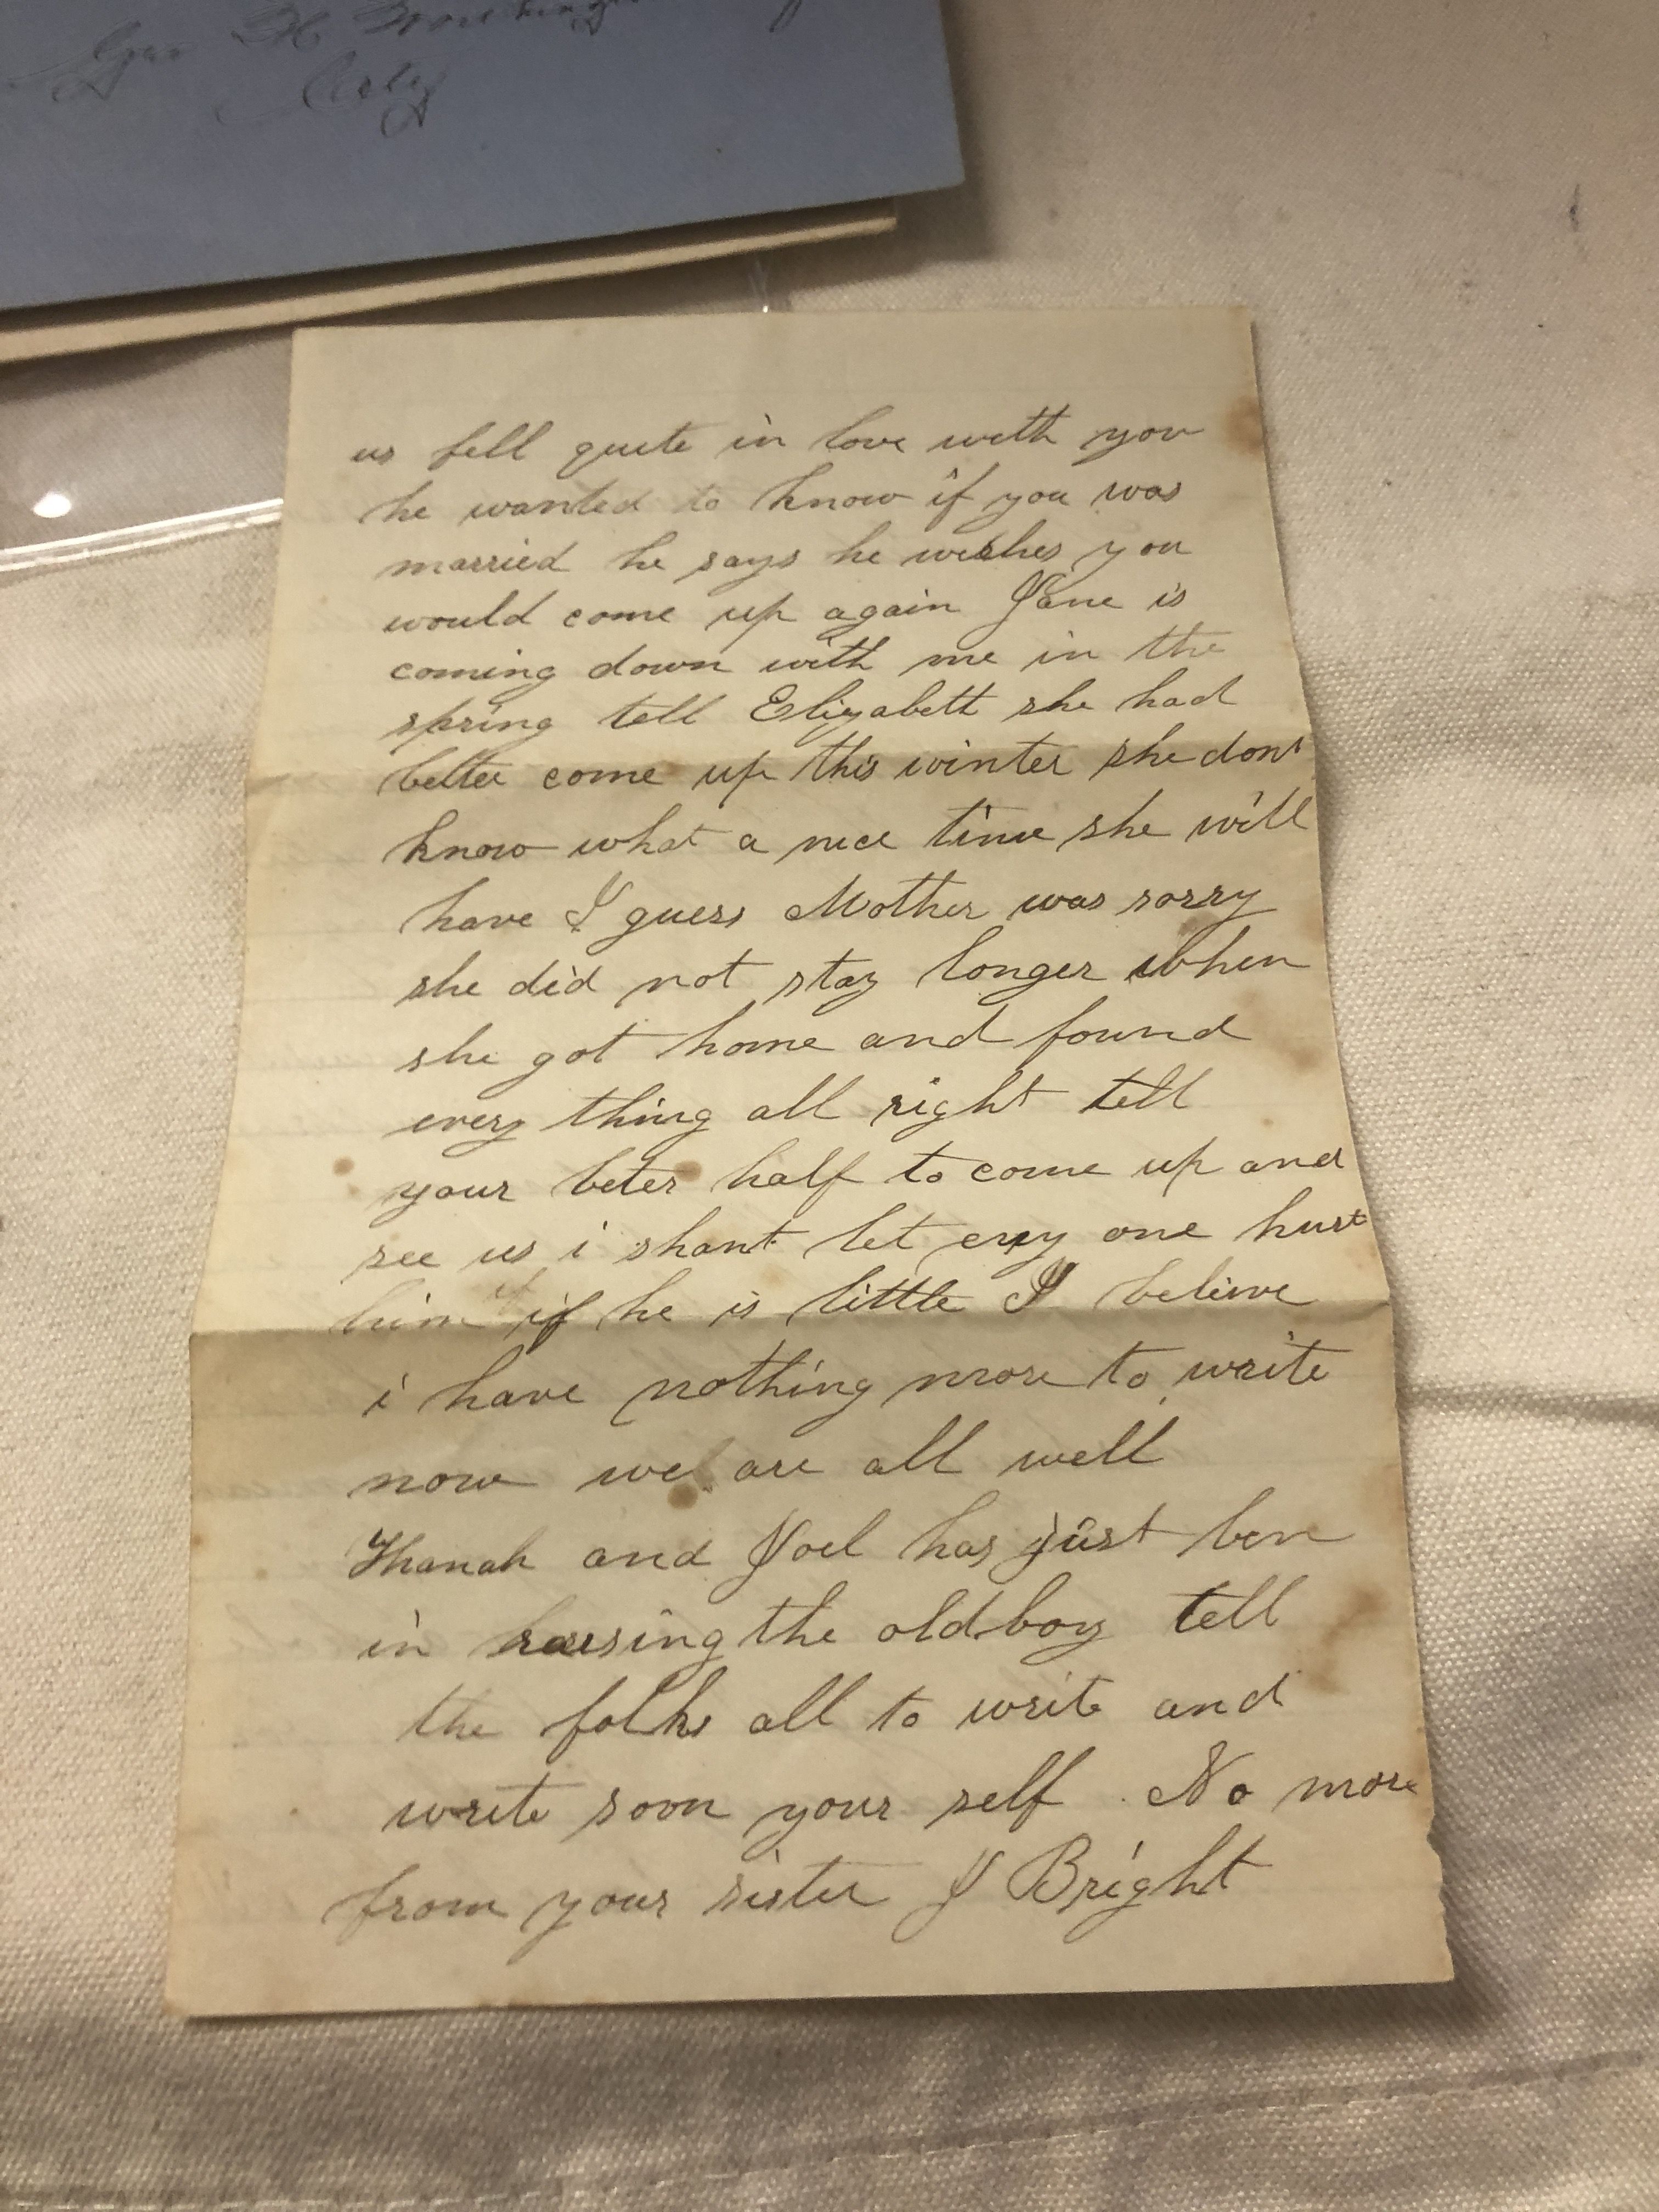 Geo H
City
us fell quite in love with you
he wanted to know if you was
married he says he wishes you
would come up again Jane is
coming down with me in the
spring tell Elizabett she had
better come up this winter she dont
know what a nice time she will
have I guess Mother was sorry
she did not stay longer when
she got home and found
every thing all right tell
your beter half to come up and
see us i shant let eny one hurt
him if he is little I believe
i have nothing more to write
now we are all well
Hanah and Joel has just ben
in raising the old boy tell
the folks all to write and
write soon your self . No more
from your sister J Bright